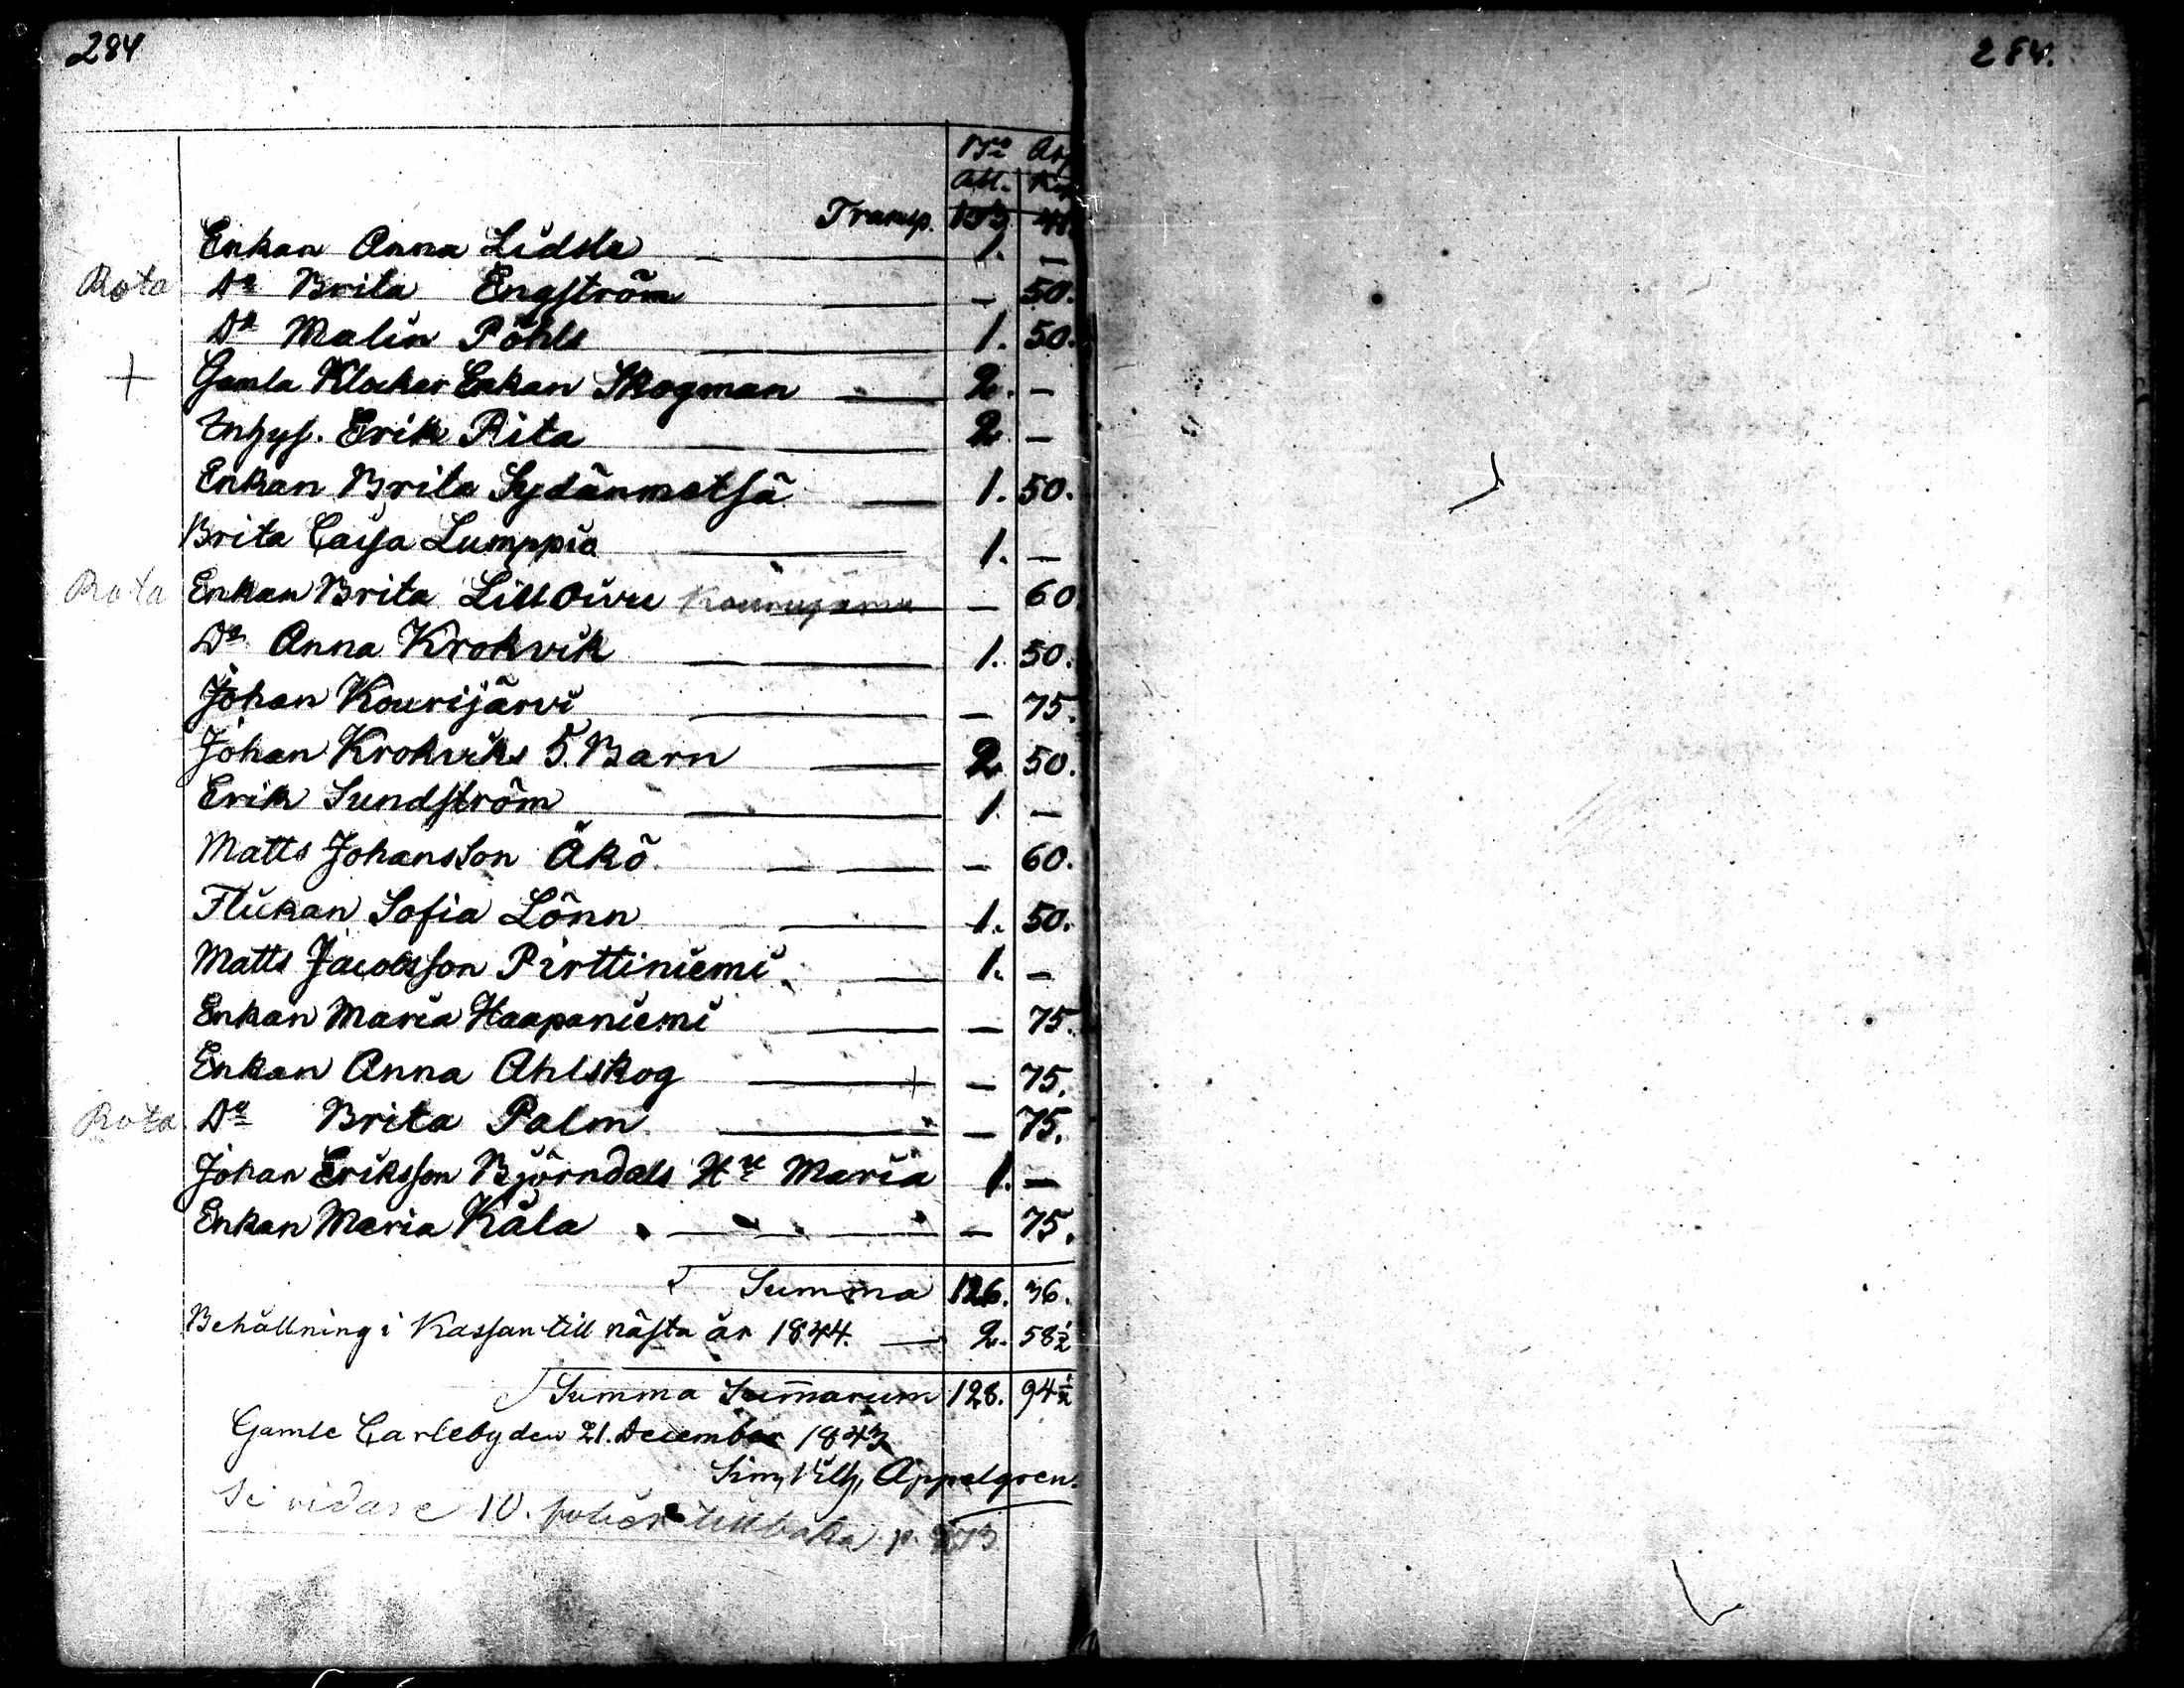 284
284.
B:co Ass
Att. Kop
Transp.
Enkan Anna Lidsle — 1. —
Rota D:o Brita Engström — — 50.
D:o Malin Pöhls — 1. 50.
+ Gamla Klockar Enkan Skogman — 2. —
Inhys. Erik Rita — 2 —
Enkan Brita Sydänmetsä — 1. 50.
Brita Caisa Lumppio — 1. —
Rota Enkan Brita LillOivu — 60
D:o Anna Krokvik — 1. 50.
Johan Kourijärvi — — 75.
Johan Krokviks 5. Barn — 2 50.
Erik Sundström — 1. —
Matts Johansson Åkö — — 60.
Flickan Sofia Lönn — 1. 50.
Matts Jacobsson Pirttiniemi — 1. —
Enkan Maria Haapaniemi — — 75.
Enkan Anna Ahlskog — + — 75.
Rota D:o Brita Palm — — 75.
Johan Eriksson Björndals H:u Maria 1. —
Enkan Maria Kåla — — 75.
Summa 126. 36.
Behållning i Kassan till nästa år 1844. — 2. 58½
Summa Summarum 128. 94½
Gamle Carleby den 21. December 1843
Sim, Vilh, Appelgren.
Se vidare 10. tillbaka p. 273